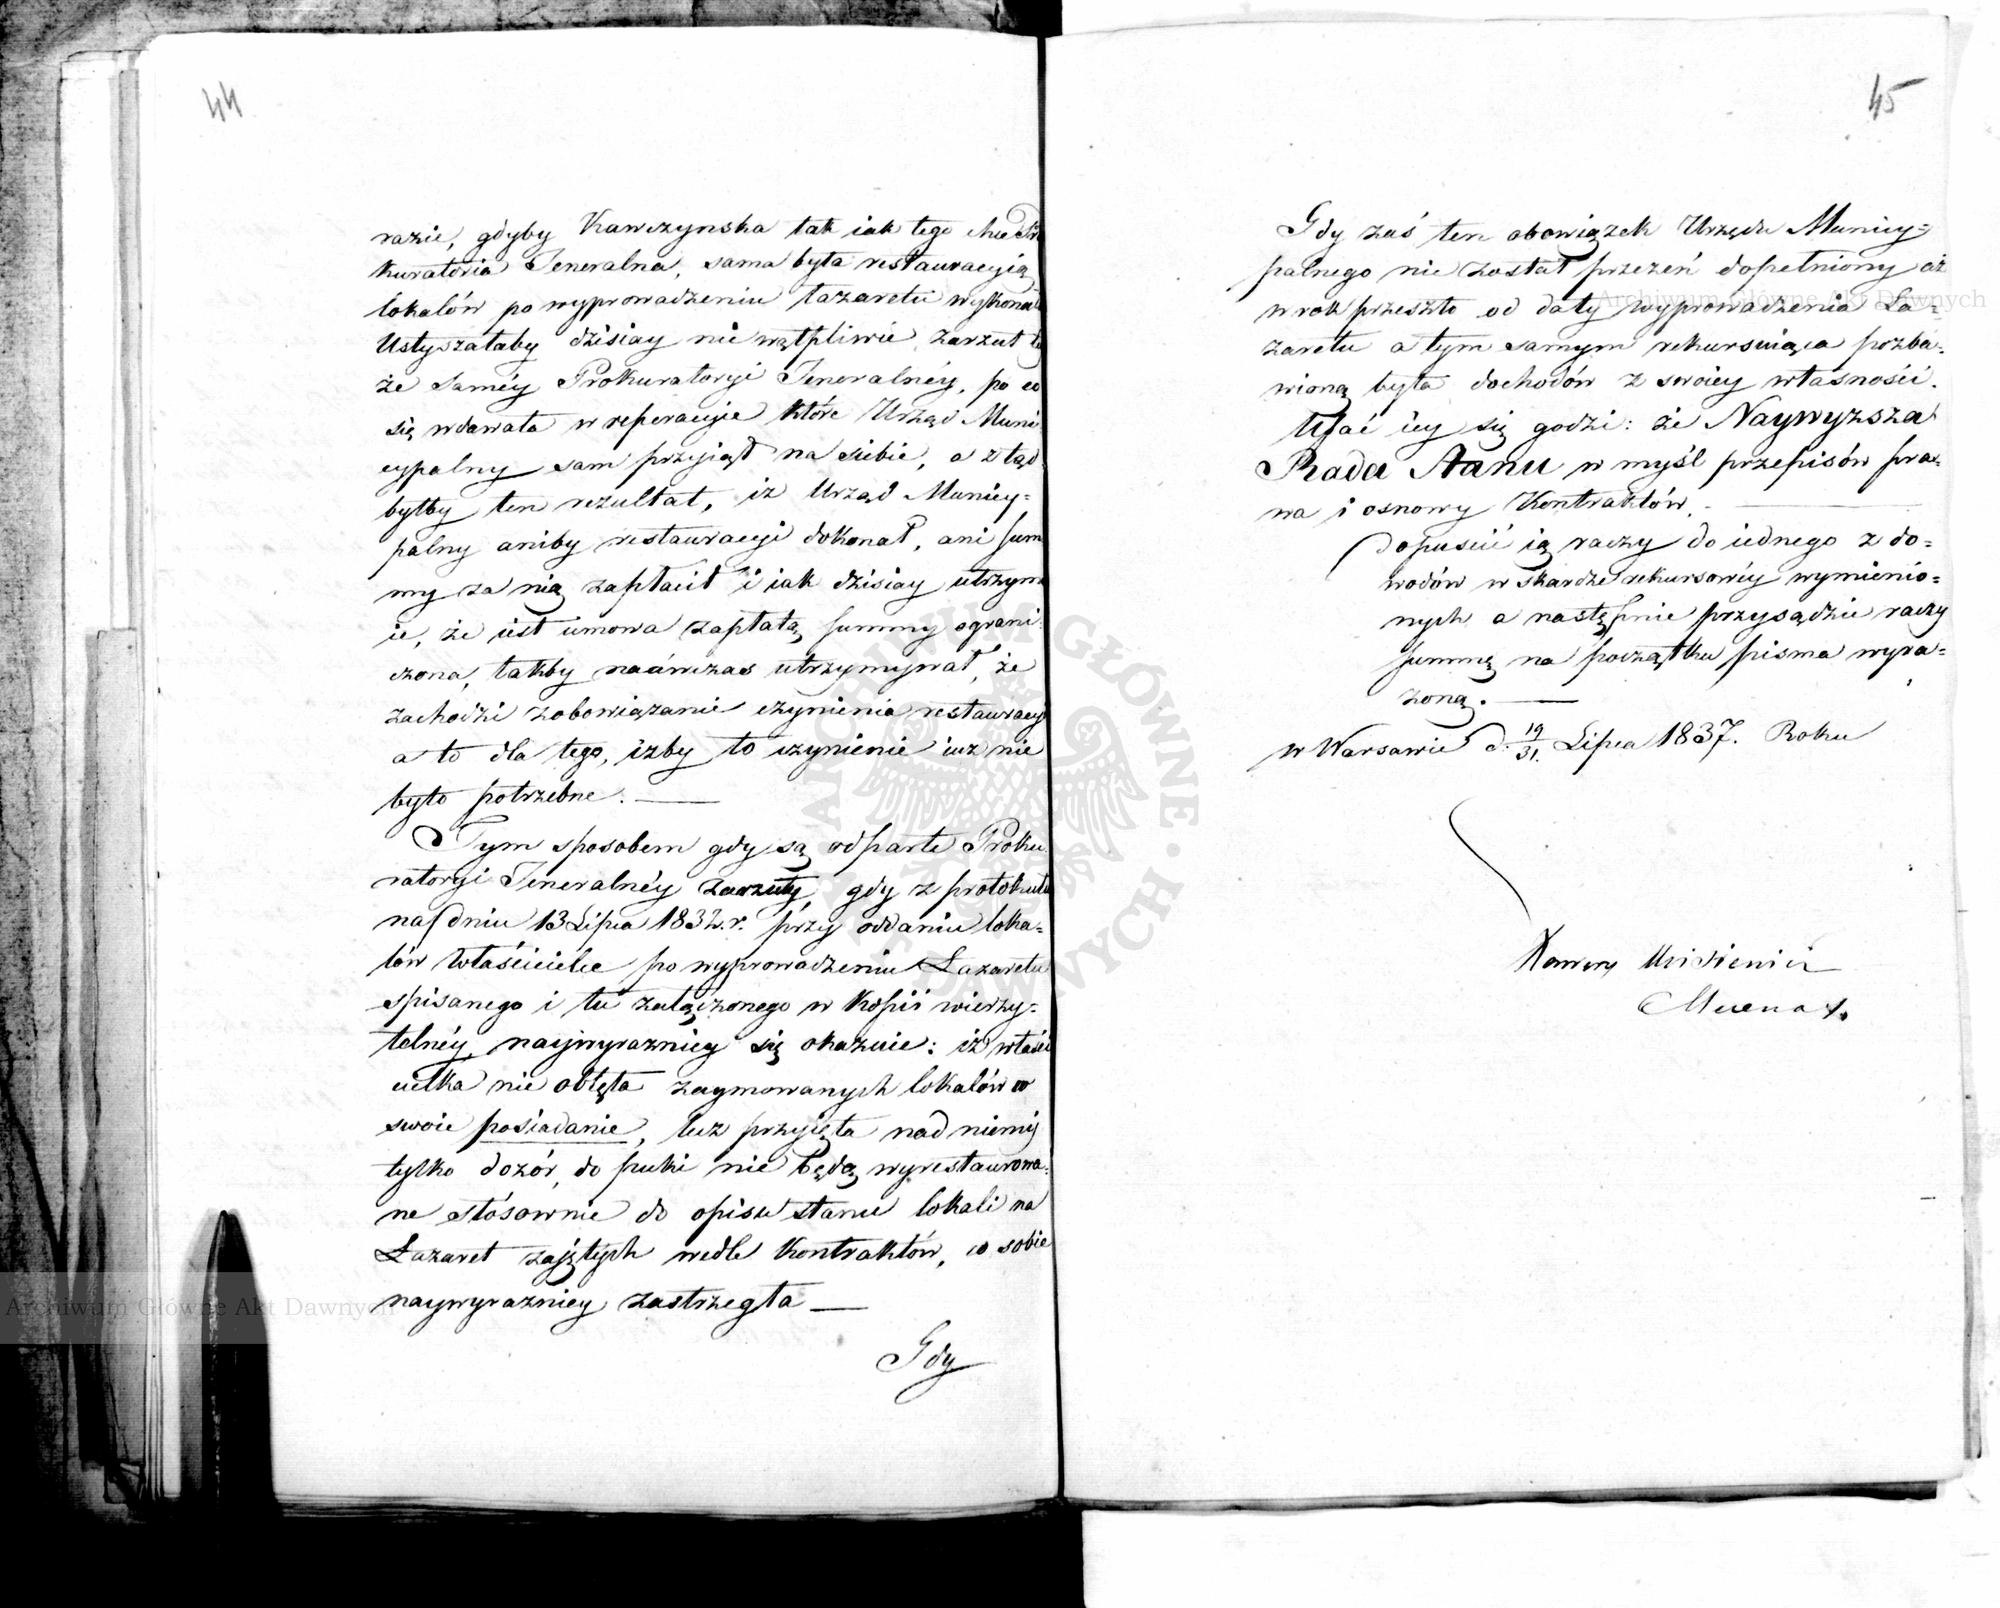 44
razie, gdyby Kawczynska tak iak tego chce Pro
kuratoria Jeneralna, sama była restauracyią
lokalów po wyprowadzeniu lazaretu wykona
Usłyszałaby dzisiay nie wątpliwie zarzut te
że saméy Prokuratoryi Jeneralnéy, po co
się wdawała w reperacyie które Urząd Muni
cypalny sam przyiął na siebie, a ztąd
byłby ten rezultat, iż Urząd Municy=
palny aniby restauracyi dokonał, ani sum
my za nią zapłacił i iak dzisiay utrzym
ie, że iest umowa zapłatą summy ograni
czona, takby naówczas utrzymywał, że
zachodzi zobowiązanie czynienia restauracyi
a to dla tego, iżby to czynienie iuż nie
było potrzebne. —
Tym sposobem gdy są odparte Proku
ratoryi Jeneralnéy zarzuty, gdy z protokułu
na dniu 13 Lipca 1832. r. przy oddaniu loka=
lów właścicielce po wyprowadzeniu Lazaretu
spisanego i tu załączonego w kopii wierzy=
telnéy, naywyrazniey się okazuie: iż właści
cielka nie obięła zaymowanych lokalów w
swoie posiadanie, lecz przyięła nad niemi
tylko dozór, do puki nie będą wyrestaurowa=
ne stósownie do opisu stanu lokali na
Lazaret zajętych wedle kontraktów, co sobie
naywyrazniey zastrzegła —
Gdy
45
Gdy zaś ten obowiązek Urzędu Municy=
palnego nie został przezeń dopełniony aż
w rok przeszło od daty wyprowadzenia La=
zaretu a tym samym rekursuiąca pozba=
wioną była dochodów z swoiey własności.
Ufać iey się godzi: że Naywyższa
Rada Stanu w myśl przepisów pra=
wa i osnowy Kontraktów. —
dopuscić ią raczy do iednego z do=
wodów w skardze rekursowéy wymienio=
nych a następnie przysądzić raczy
summę na początku pisma wyra=
żoną. —
w Warszawie d. 19/31. Lipca 1837. Roku
Mecenas.
Archiwum Główne Akt Dawnych
Archiwum Główne Akt Dawnych
ARCHIWUM GŁÓWNE AKT DAWNYCH